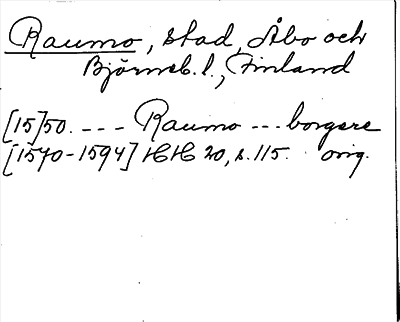 Raumo, stad, Åbo och
Björneb. l., Finland
[15]50. --- Raumo --- borgere
[1540-1594] HH 20, s. 115. orig.